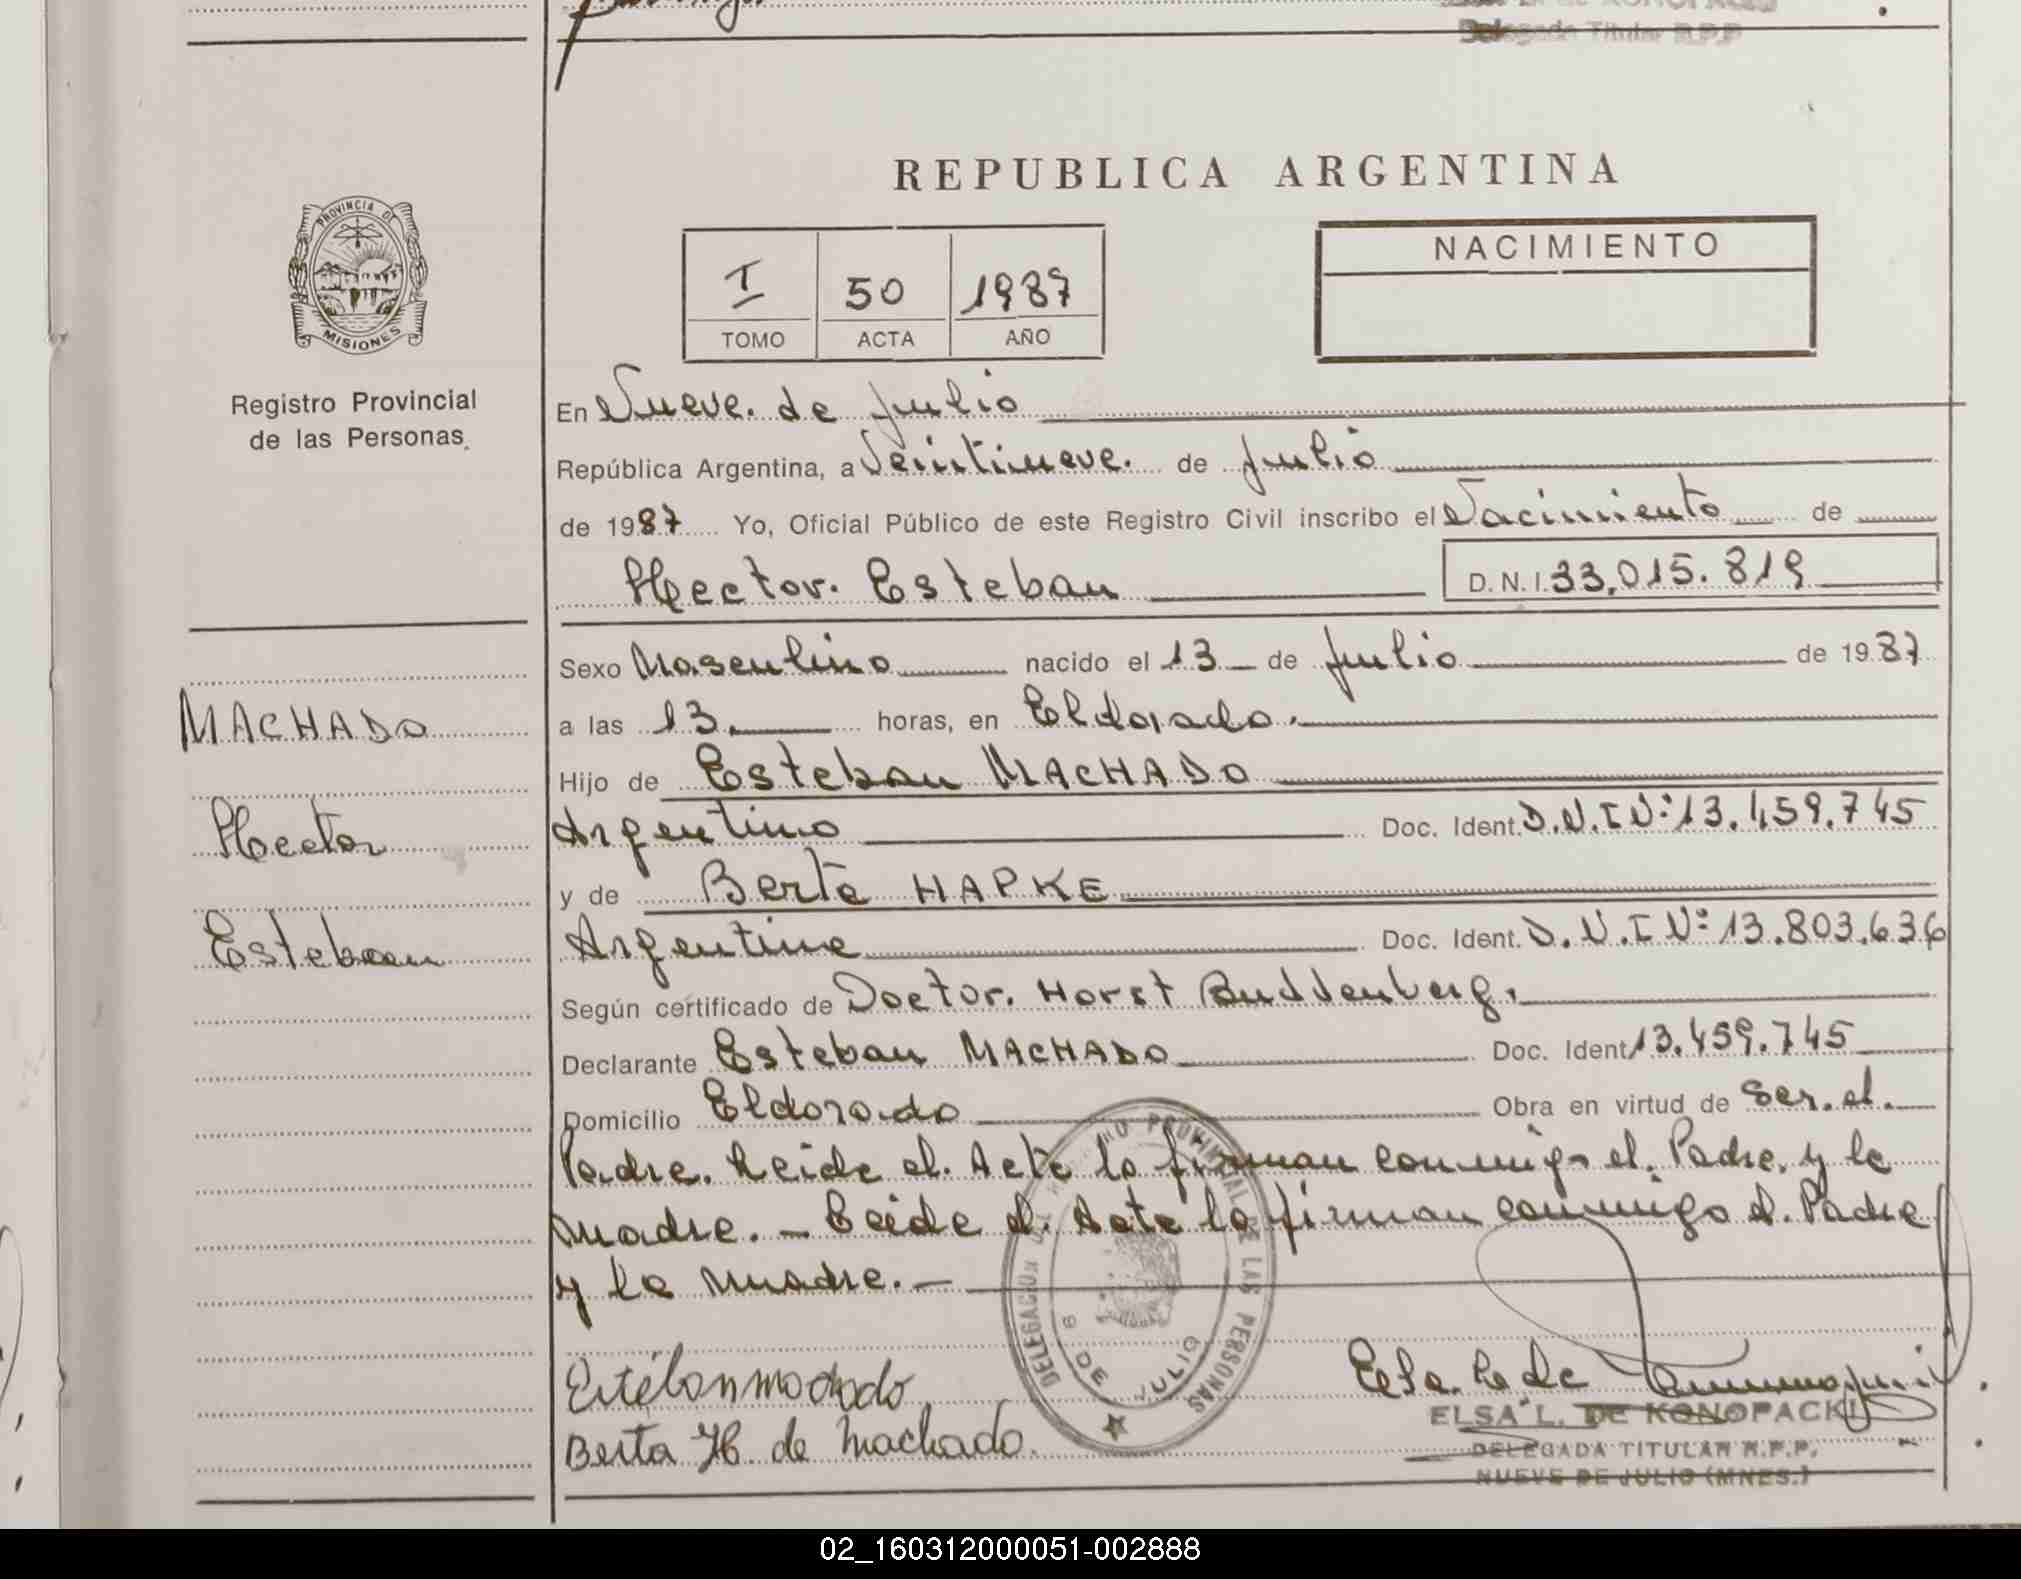 Delegado Titular R.P.P
REPUBLICA ARGENTINA
PROVINCIA DE
MISIONES
Registro Provincial
de las Personas
I 50 1987
TOMO ACTA AÑO
NACIMIENTO
En Nueve de Julio
República Argentina, a Veintinueve. de Julio
de 1987 Yo, Oficial Público de este Registro Civil inscribo el Nacimiento de
Hector. Esteban D.N.I. 33.015.819
Sexo Masculino nacido el 13 de Julio de 1987
MACHADO
a las 13. horas, en Eldorado.
Hijo de Esteban MACHADO
Hector
Argentino Doc. Ident. D.N.I Nº 13.459.745
y de Berta HAPKE
Esteban
Argentina Doc. Ident. D.N.I Nº 13.803.636
Según certificado de Doctor. Horst Buddenberg.
Declarante Esteban MACHADO Doc. Ident 13.459.745
Domicilio Eldorado Obra en virtud de Ser. el.
Padre. Leida el. Acta la firman conmigo el. Padre. y la
madre. – Leida el. Acta la firman conmigo el. Padre
y la madre. –
DELEGACION DEL REGISTRO PROVINCIAL DE LAS PERSONAS
9 DE JULIO
Estebanmachado
Berta H. de Machado.
Elsa. L. de
ELSA L. DE KONOPACKI
DELEGADA TITULAR R.P.P.
NUEVE DE JULIO (MNES.)
02_160312000051-002888